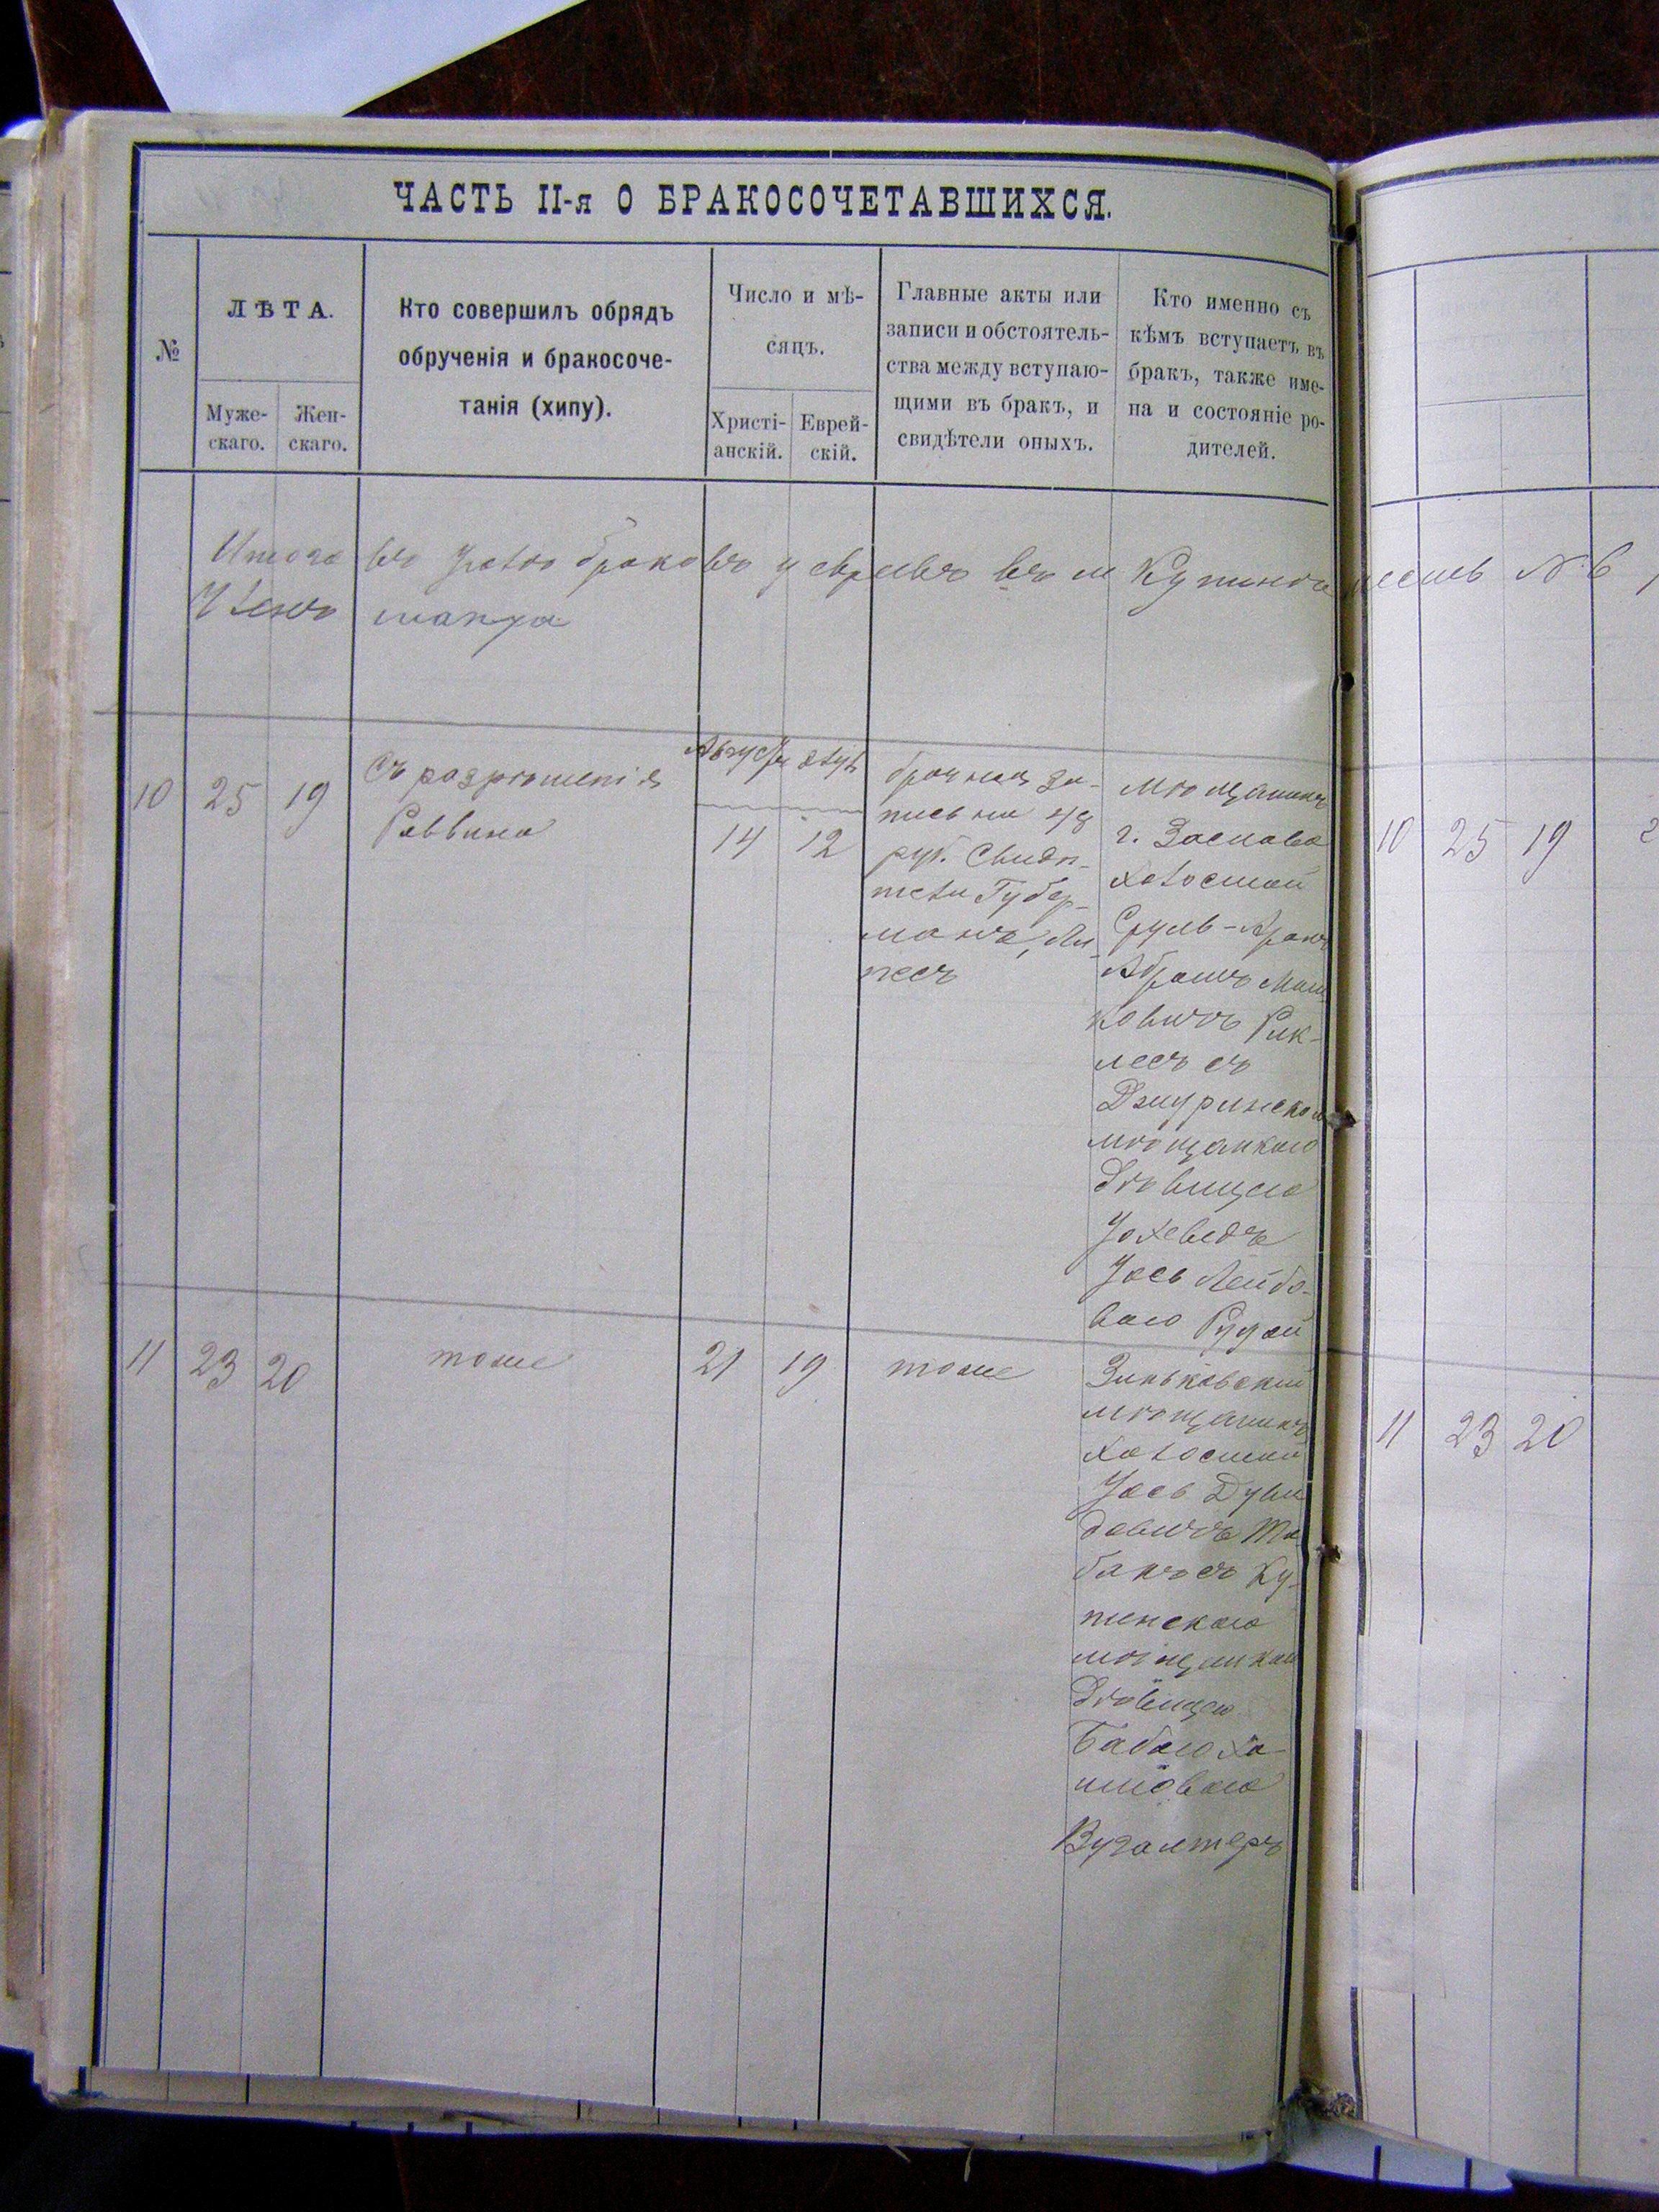 ЧАСТЬ II-я О БРАКОСОЧЕТАВШИХСЯ.
№
ЛѢТА.
Муже-
скаго.
Жен-
скаго.
Кто совершилъ обрядъ
обрученія и бракосоче-
танія (хипу).
Число и мѣ-
сяцъ.
Христі-
анскій.
Еврей-
скій.
Главные акты или
записи и обстоятель-
ства между вступаю-
щими въ бракъ, и
свидѣтели оныхъ.
Кто именно съ
кѣмъ вступаетъ въ
бракъ, также име-
на и состояніе ро-
дителей.
Итого въ браковъ у евреевъ въ м Купинѣ
10 25 19
Съ разрѣшенія
Раввина
Августъ
14 12
брачная за-
пись на 48
руб. Свидѣ-
тели Губер-
манъ, Ли-
песъ
мѣщанинъ
г. Заслава
холостой
Сруль-Аронъ
Абрамъ Мош
ковичъ Рик-
лесъ съ
Дзигуринскою
мѣщанкою
дѣвицею
Іохевидъ
Іось Лейбо-
вою Рудой
11 23 20
тоже
21 19
тоже
Зиньковскій
мѣщанинъ
холостой
Іось Дуви
довичъ Та
банъ съ Ку-
пинскою
мѣщанкой
дѣвицею
Бабою Ха
имовою
Вугалтеръ
№ 6
10 25 19 2
11 23 20